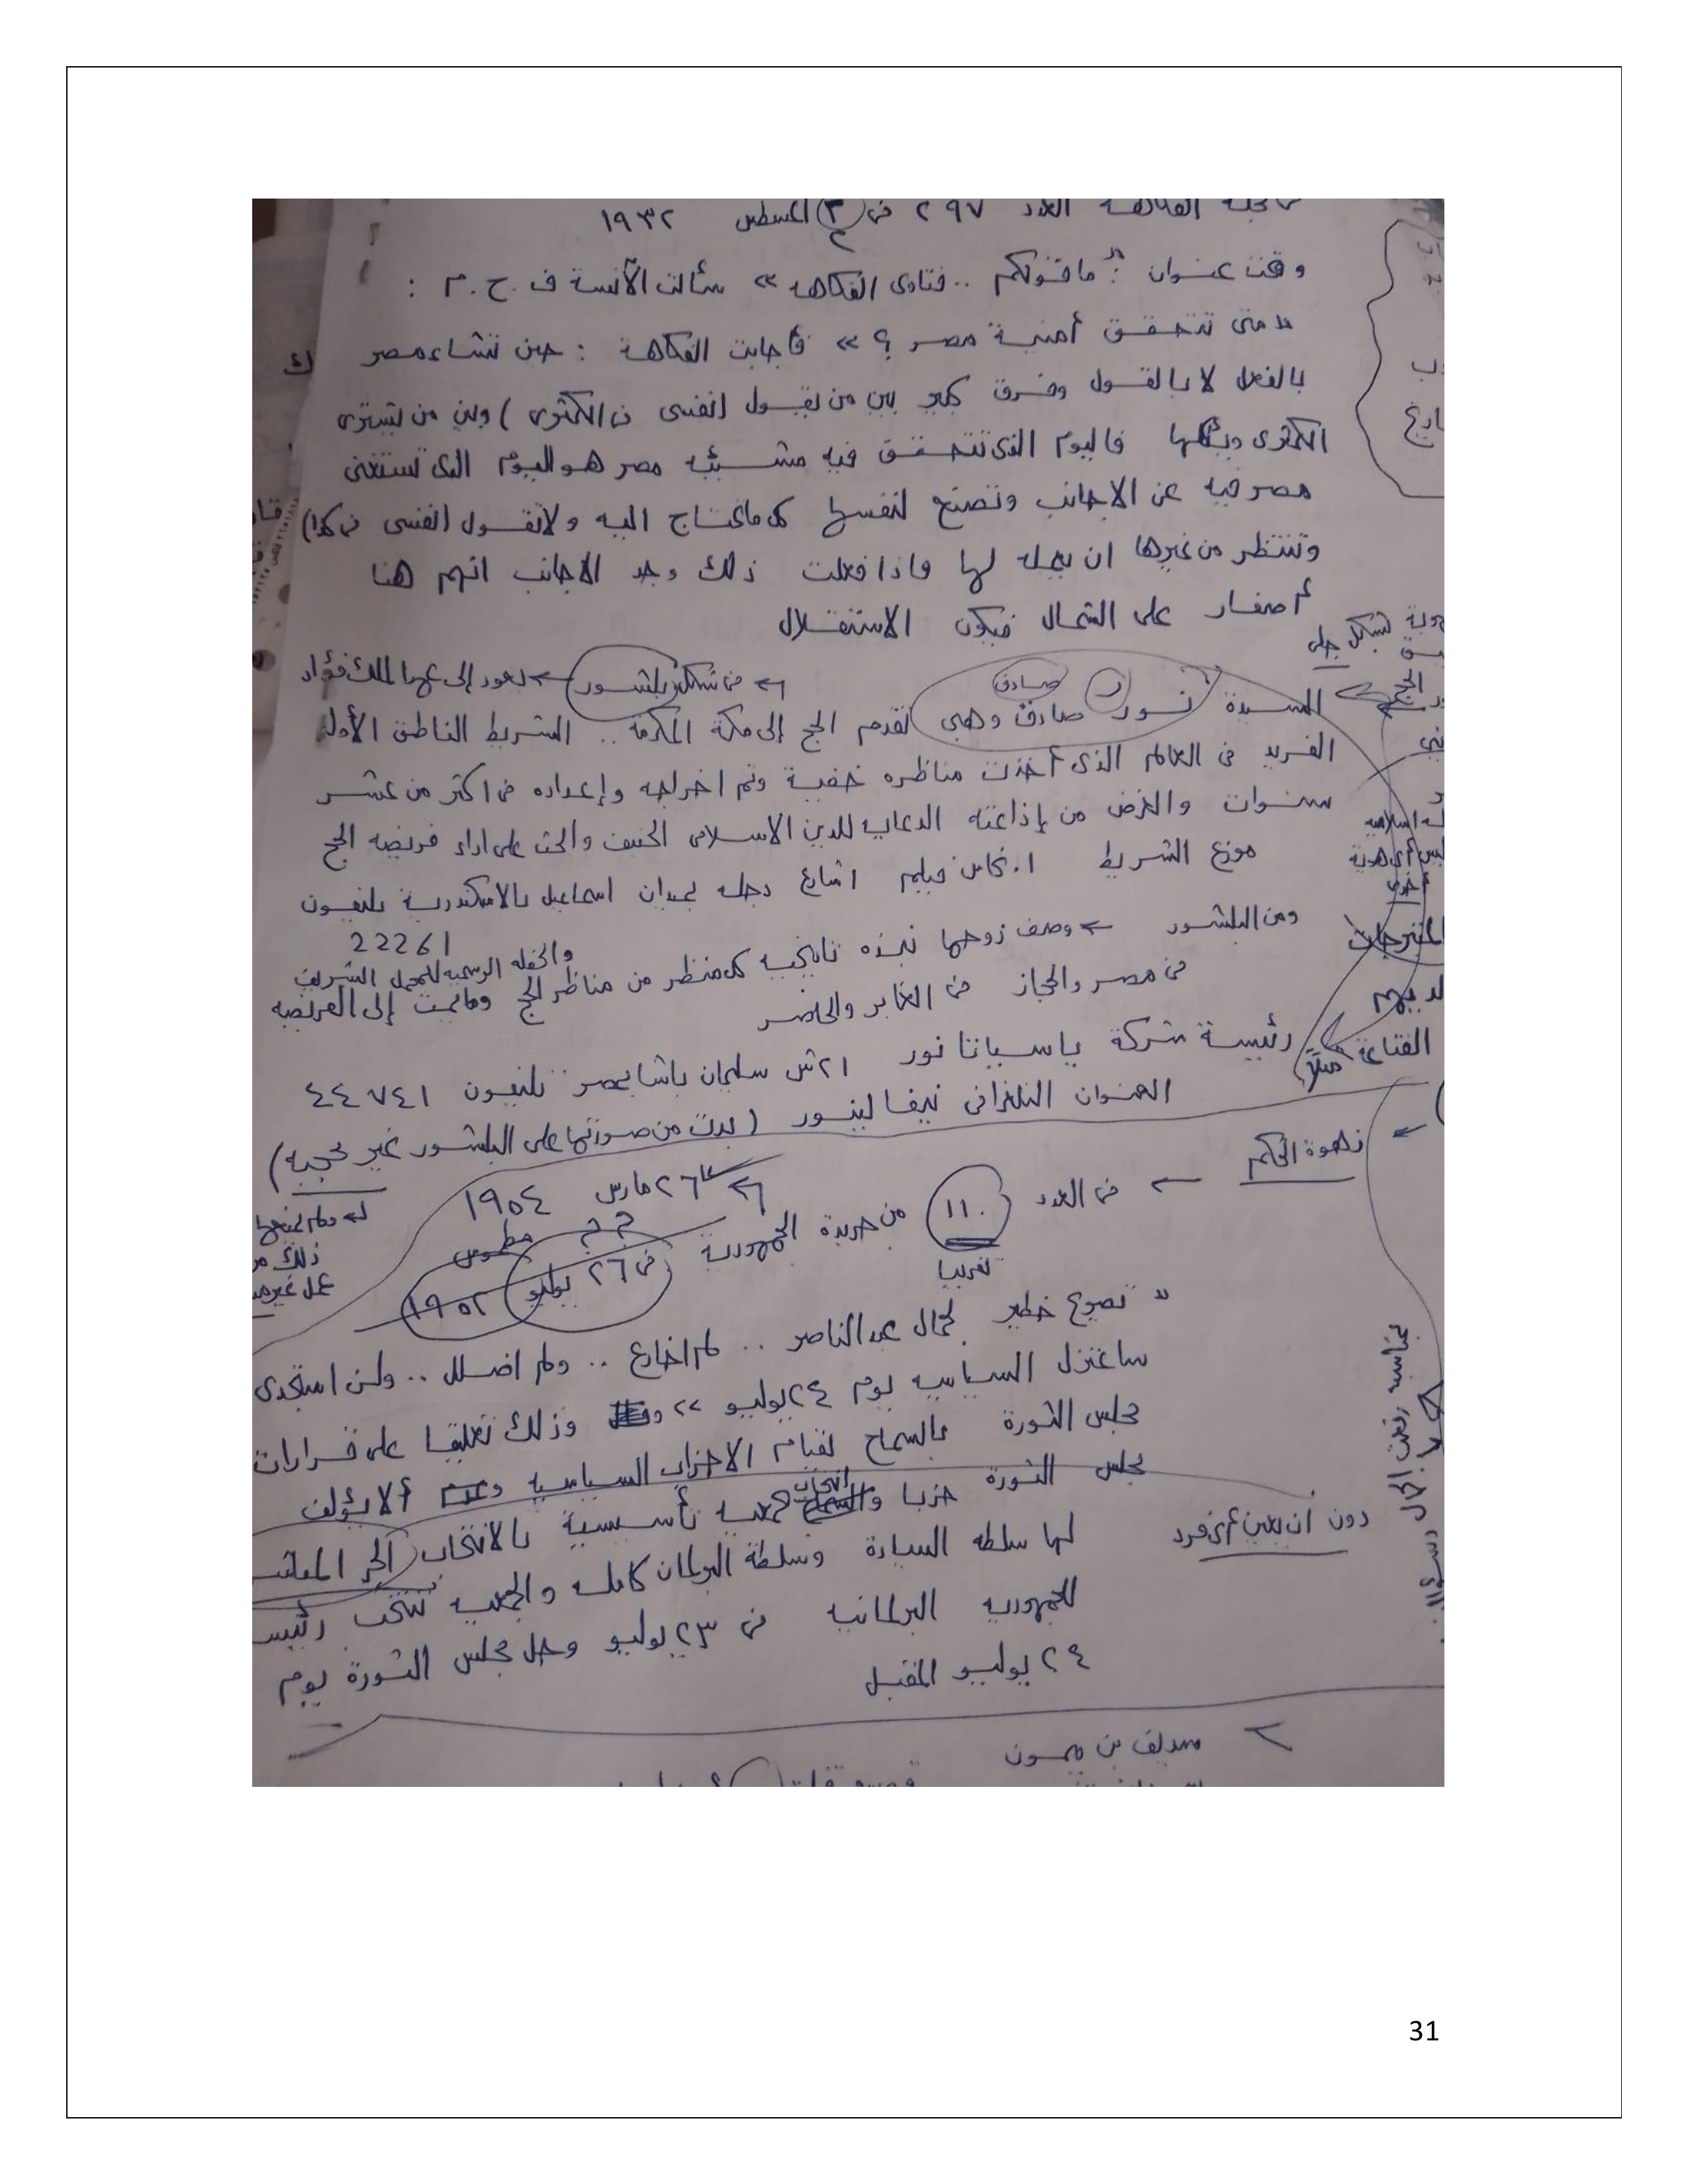 مجلة الفكاهة العدد ٢٩٧ فى ٣ اغسطس ١٩٣٢
٢
وتحت عنوان " ما قولكم .. فتاوى الفكاهه » سألت الآنسة ف . ح . م :
« متى تتحقق أمنية مصر ؟ » فأجابت الفكاهة : حين تشاء مصر
بالفعل لا بالقول وفرق كبير بين من يقول (نفسى فى الكمثرى) وبين من يشترى
الكمثرى ويأكلها فاليوم الذى تتحقق فيه مشيئه مصر هو اليوم الذى تستغنى
مصر فيه عن الاجانب وتصنع لنفسها كل ما تحتاج اليه ولا تقول (نفسى فى كذا)
وتنتظر من غيرها ان يعمله لها فاذا فعلت ذلك وجد الاجانب انهم هنا
أصفار على الشمال فيكون الاستقلال
فى شكل بلشور ← تعود إلى عهد الملك فؤاد
صادق
السيدة نور صادق وهبى تقدم الحج إلى مكة المكرمة .. الشريط الناطق الأول
الفريد فى العالم الذى أخذت مناظره خفية وتم اخراجه وإعداده فى اكثر من عشر
سنوات والغرض من إذاعته الدعايه للدين الاسلامى الحنيف والحث على اداء فريضه الحج
موزع الشريط ا . نحاس فيلم ١ شارع دجله بميدان اسماعيل بالاسكندرية تليفون
22261
ومن البلشور ← وصف زوجها نبذه تاريخيه كل منظر من مناظر الحج وما يمت إلى الفريضه
والحفله الرسميه للمحمل الشريف
فى مصر والحجاز فى الغابر والحاضر
رئيسة شركة ياسيانا نور ٢١ ش سليمان باشا بمصر تليفون ٤٤٧٤١
العنوان التلغرافى نيفا لينور (بدت من صورتها على البلشور غير محجبه)
← زهوة الحكم ← فى العدد ١١٠ من جريدة الجمهورية
تقريبا
٢٦ مارس ١٩٥٤
فى ٢٦ يوليو ١٩٥٢
مطموس
« تصريح خطير لجمال عبد الناصر .. لم اخادع .. ولم اضلل .. ولن استجدى
ساعتزل السياسيه يوم ٢٤ يوليو » وذلك تعليقا على قرارات
مجلس الثورة بالسماح لقيام الاحزاب السياسية وعدم ألا يؤلف
مجلس الثورة حزبا وانتخاب جمعيه تأسيسية بالانتخاب الحر المباشر
دون ان يعين أى فرد
لها سلطه السيادة وسلطة البرلمان كامله والجمعيه تنتخب رئيس
للجمهوريه البرلمانيه فى ٢٣ يوليو وحل مجلس الثورة يوم
٢٤ يوليو المقبل
سديف بن ميمون
31